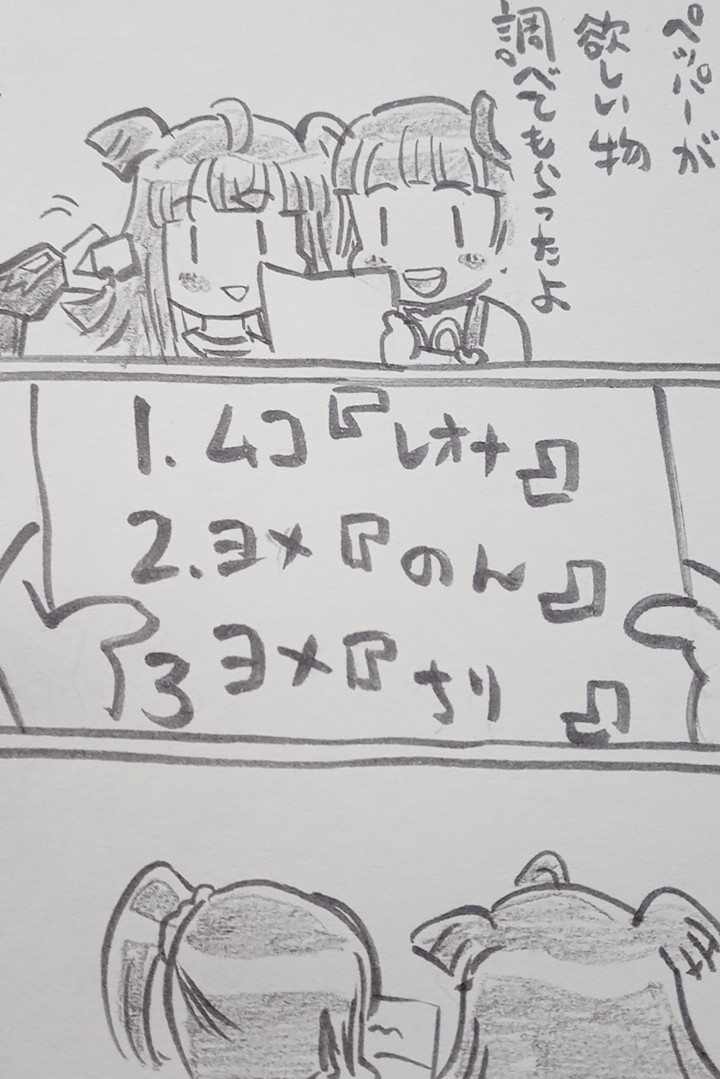 ペッパーが
欲しい物
調べてもらったよ
1.ムコ『レオナ』
2.ヨメ『のん』
3 ヨメ『ちり』